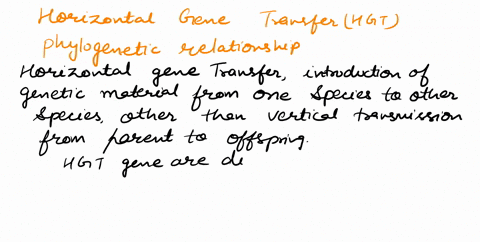 Horizontal Gene Transfer (HGT)
phylogenetic relationship
Horizontal gene Transfer, introduction of
genetic material from one species to other
species, other than vertical transmission
from parent to offspring.
HGT gene are de